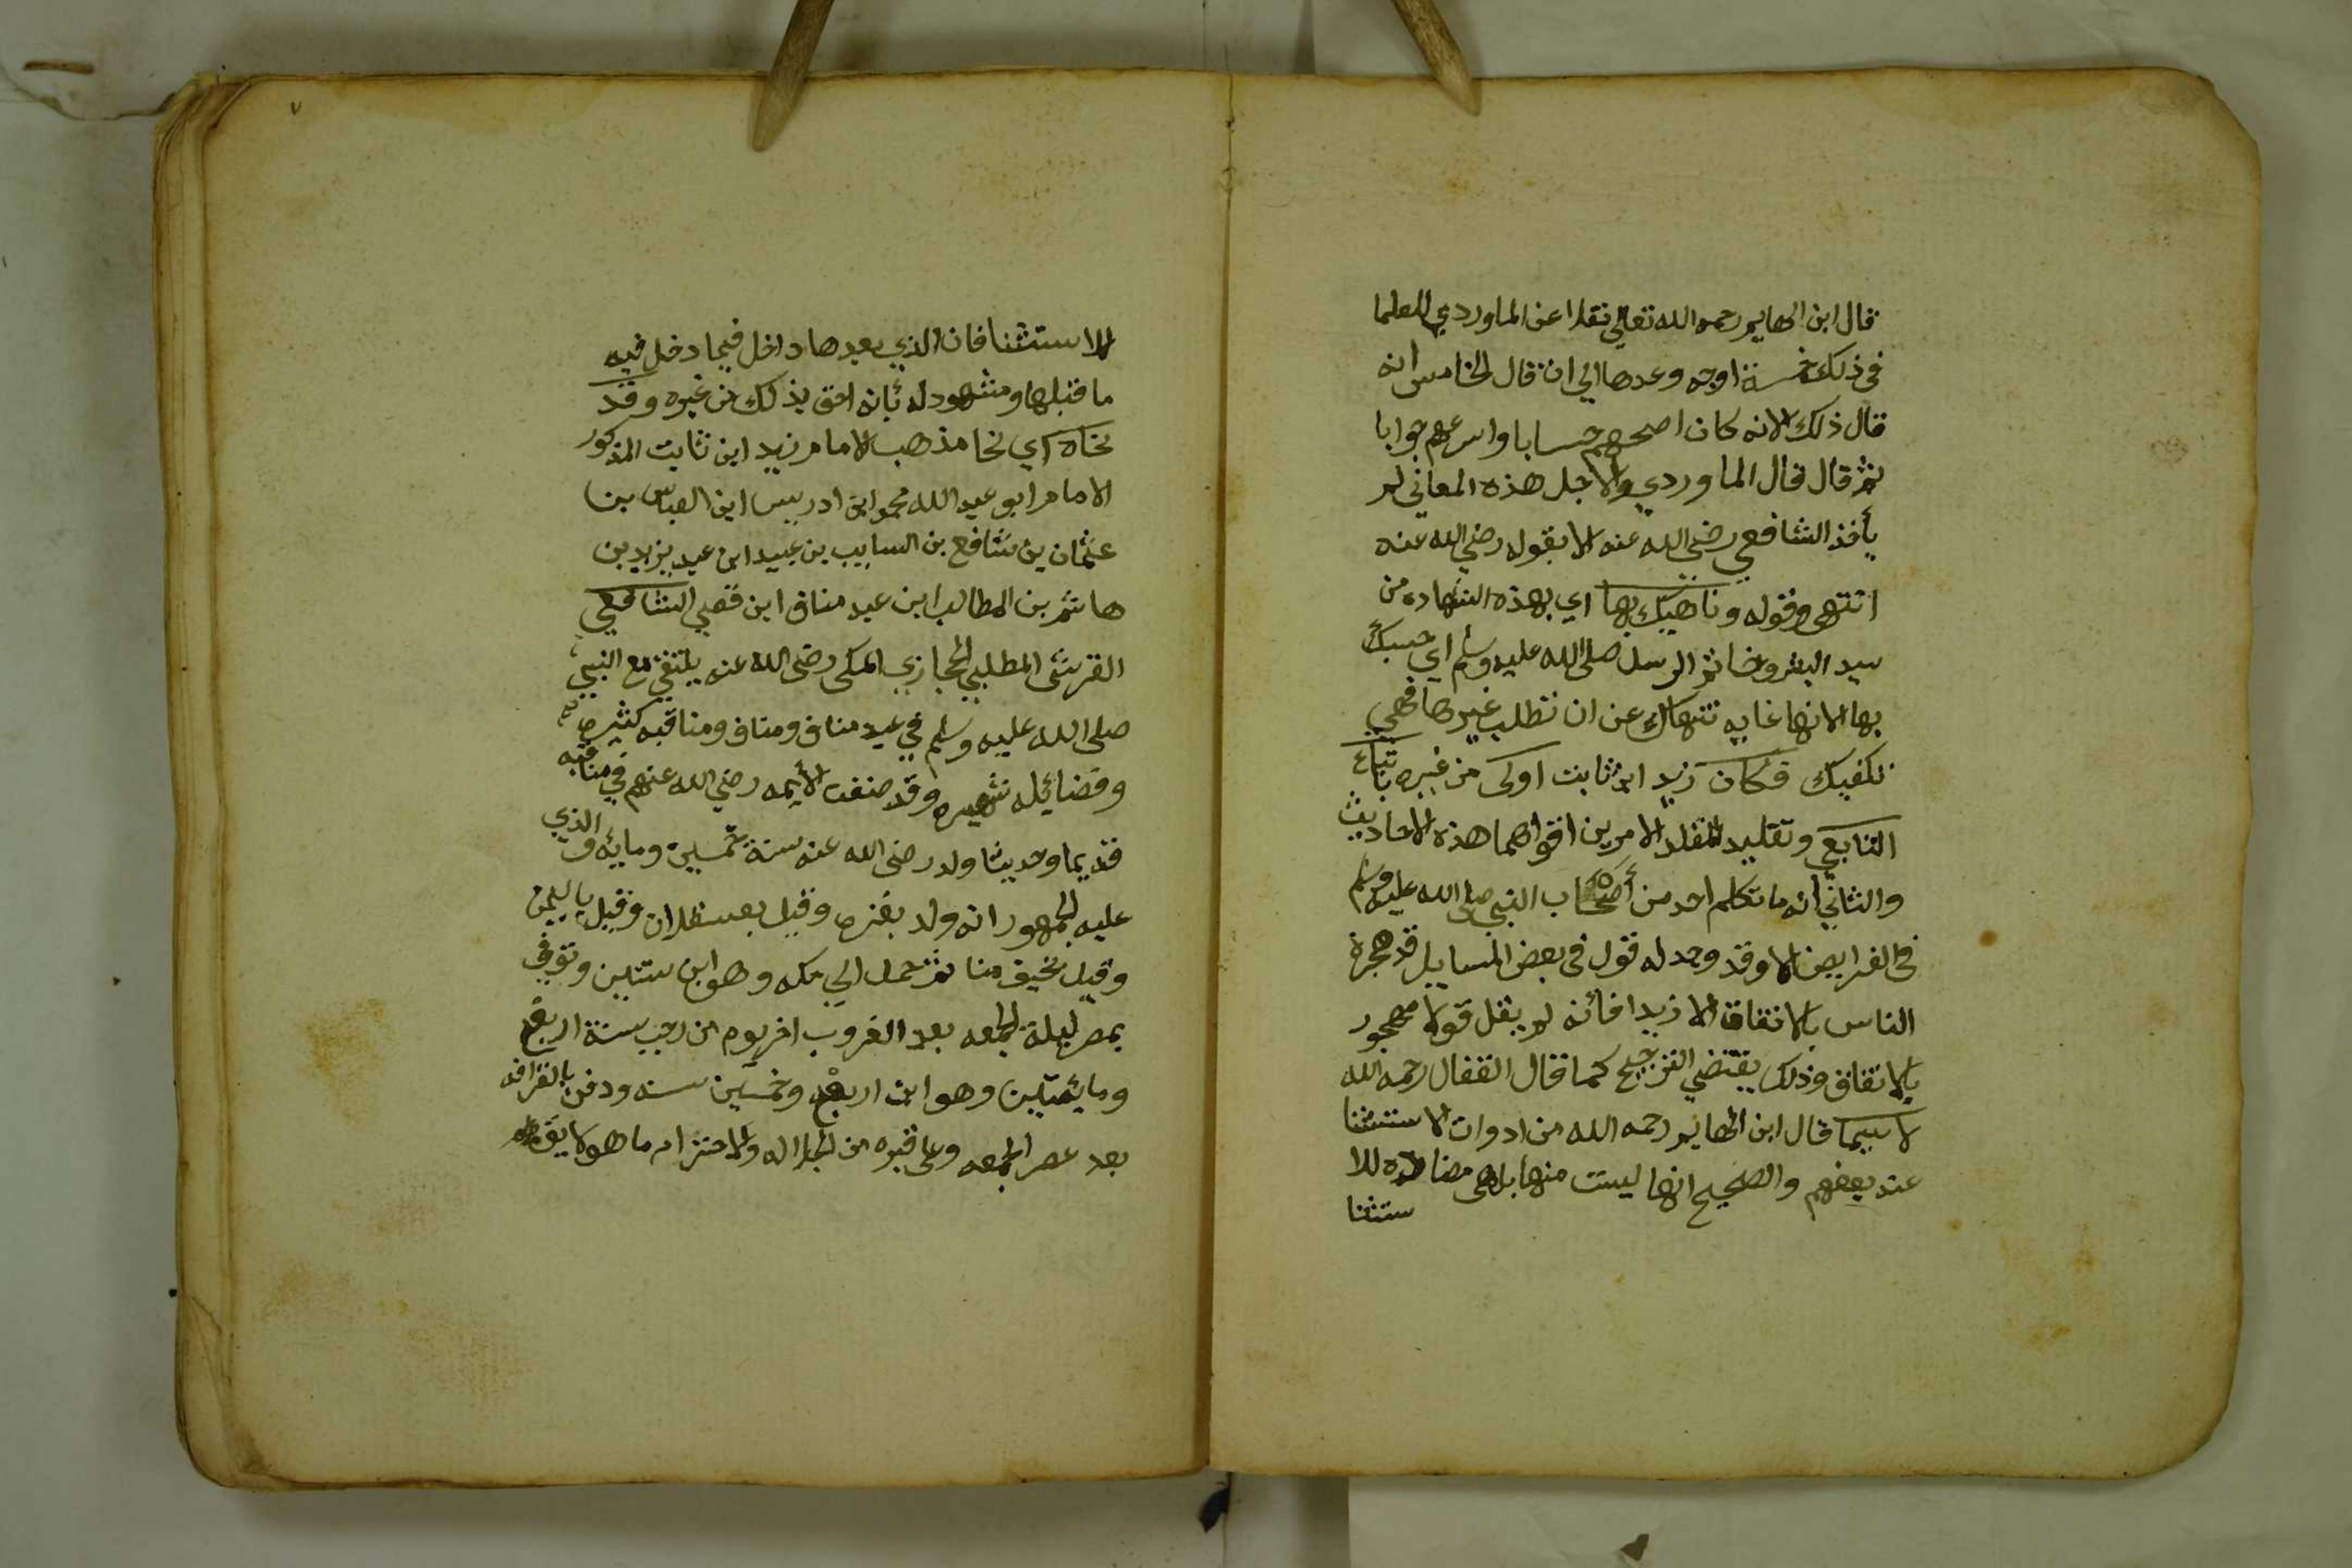 قال ابن الهايم رحمه الله تعالى نقلا عن الماوردي للعلما
في ذلك خمسة اوجه وعدها الي ان قال الخامس انه
قال ذلك لانه كان اصحهم حسابا واسرعهم جوابا
ثم قال قال الماوردي ولاجل هذه المعاني لم
يأخذ الشافعي رضي الله عنه الا بقوله رضي الله عنه
انتهى وقوله وناهيك بها اي بهذه الشهاده من
سيد البشر وخاتم الرسل صلى الله عليه وسلم اي حسبك
بها لانها غايه تنهاك عن ان تطلب غيرها فهي
تكفيك فكان زيد ابن ثابت اولى من غيره باتباع
التابعي وتقليد المقلد لامرين اقواهما هذه الاحاديث
والثاني انه ما تكلم احد من أصحاب النبي صلى الله عليه وسلم
في الفرايض الا وقد وجد له قول في بعض المسايل قد هجرة
الناس بالاتفاق الا زيدا فائنه لم يقل قولا مهجور
بالاتفاق وذلك يقتضي الترجيح كما قال القفال رحمه الله
لاسيما قال ابن الهايم رحمه الله من ادوات الاستثنا
عند بعضهم والصحيح انها ليست منها بل هي مضادة للا
ستثنا
٧
للاستثنا فان الذي بعدها داخل فيما دخل فيه
ما قبلها ومشهود له بأنه احق بذلك من غيره وقد
نحاه اي نحا مذهب الامام زيد ابن ثابت المذكور
الامام ابو عبد الله محمد ابن ادريس ابن العباس بن
عثمان بن شافع بن السايب بن عبيد ابن عبد يزيد بن
هاشم بن المطالب ابن عبد مناف ابن قصي الشافعي
القرشي المطلبي الحجازي المكي رضي الله عنه يلتقي مع النبي
صلى الله عليه وسلم في عبد مناف ومناف ومناقبه كثيره
وفضائيله شهيره وقد صنفت الأيمه رضي الله عنهم في مناقبه
قديما وحديثا ولد رضي الله عنه سنة خمسين ومايه والذي
عليه الجمهور انه ولد بغزه وقيل بعسقلان وقيل باليمن
وقيل بخيف منا ثم حمل الي مكه وهو ابن سنتين وتوفي
بمصر ليلة الجمعه بعد الغروب اخر يوم من رجب سنة اربع
ومايئتين وهو ابن اربع وخمسين سنه ودفن بالقرافه
بعد عصر الجمعه وعلى قبره من الجلاله والاحترام ما هو لايق